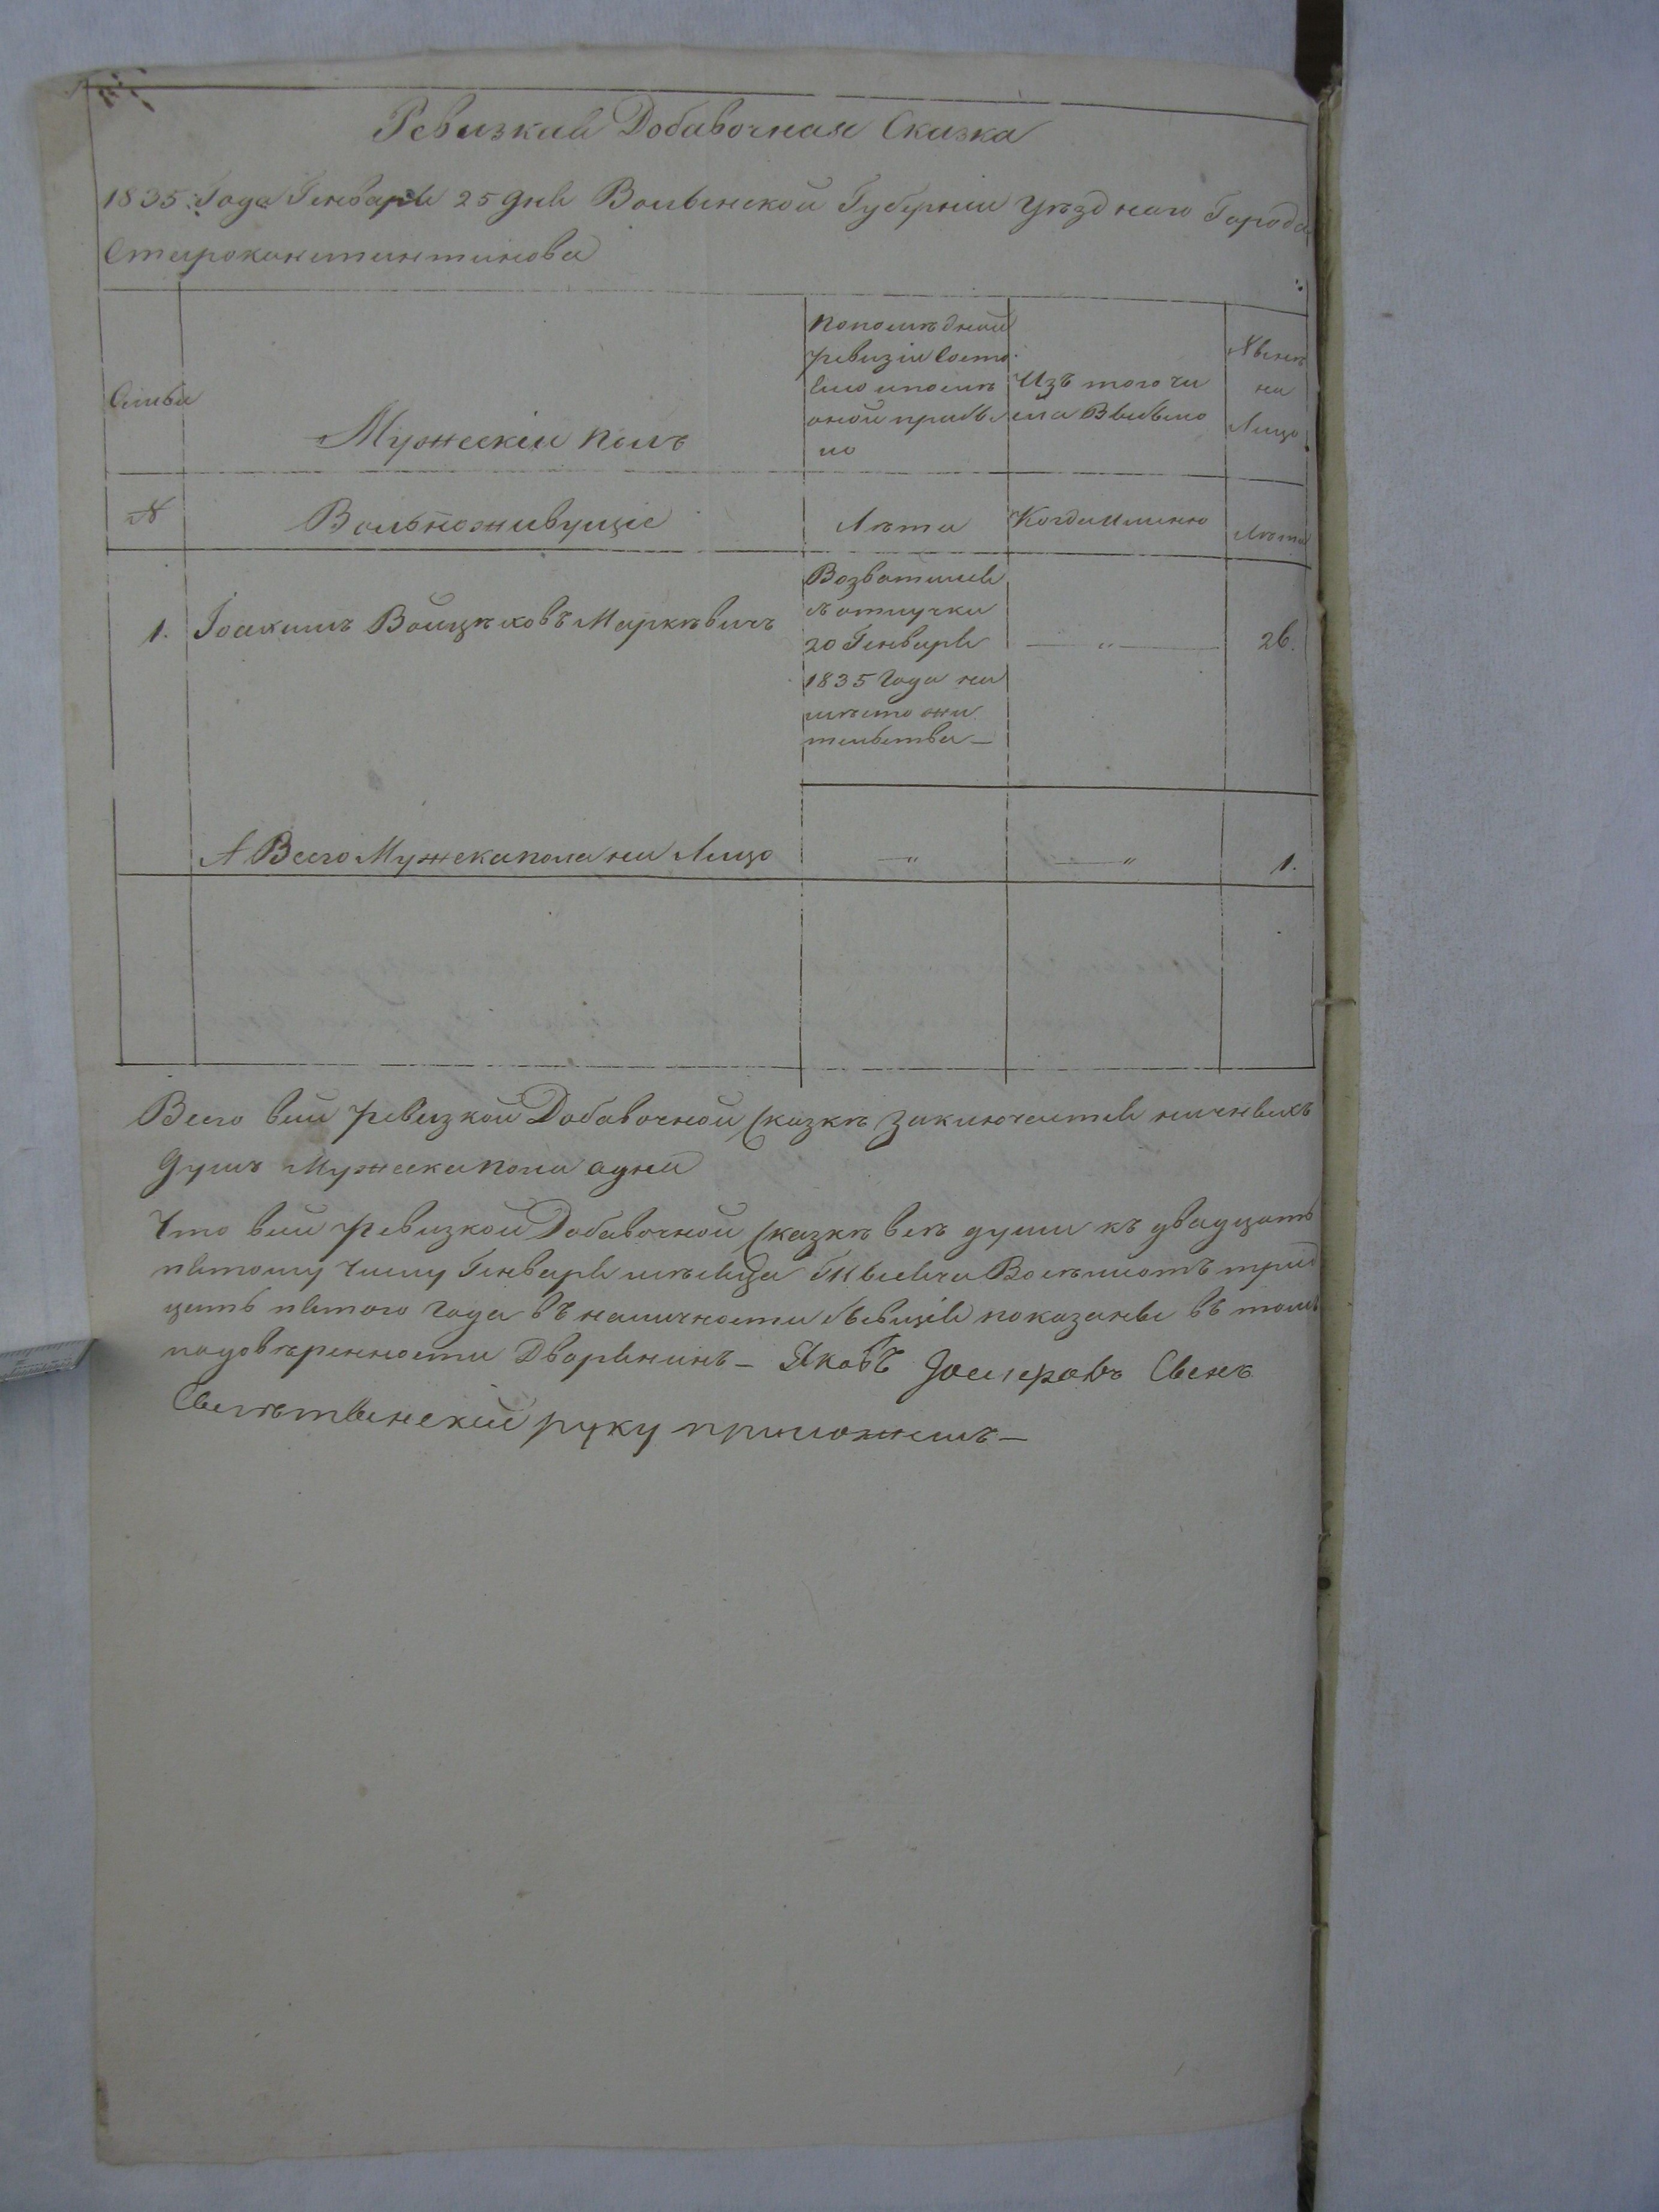 Ревизкая Добавочная Сказка
1835: Года Генваря 25 дня Волынской Губернии Уѣзднаго Города
Староконстантинова
Семья
Мужескіи полъ
По послѣдней
ревизіи Состо
яло и послѣ
оной прибы
ло
Изъ того чи
сла Выбыло
Нынѣ
на
Лицо
№
Вольноживущіе
Лѣта
Когда именно
Лѣта
1.
Іоакимъ Войцѣховъ Маркѣвичъ
Возвотился
съ отлучки
20 Генваря
1835 Года на
мѣсто жи
тельства —
— " —
26.
А Всего Мужеска пола на Лицо
— "
— "
1.
Всего всй ревизкой Добавочной Сказкѣ заключается наличныхъ
Душъ Мужеска пола одна
Что всй ревизкой Добавочной Сказкѣ всѣ души къ двадцать
пятому Числу Генваря мѣсяца тысяча Восѣмсотъ трид
цать пятого Года въ наличности бывщія показаны въ томъ
по довѣренности Дворянинъ — Яковъ Сынъ
руку приложилъ —